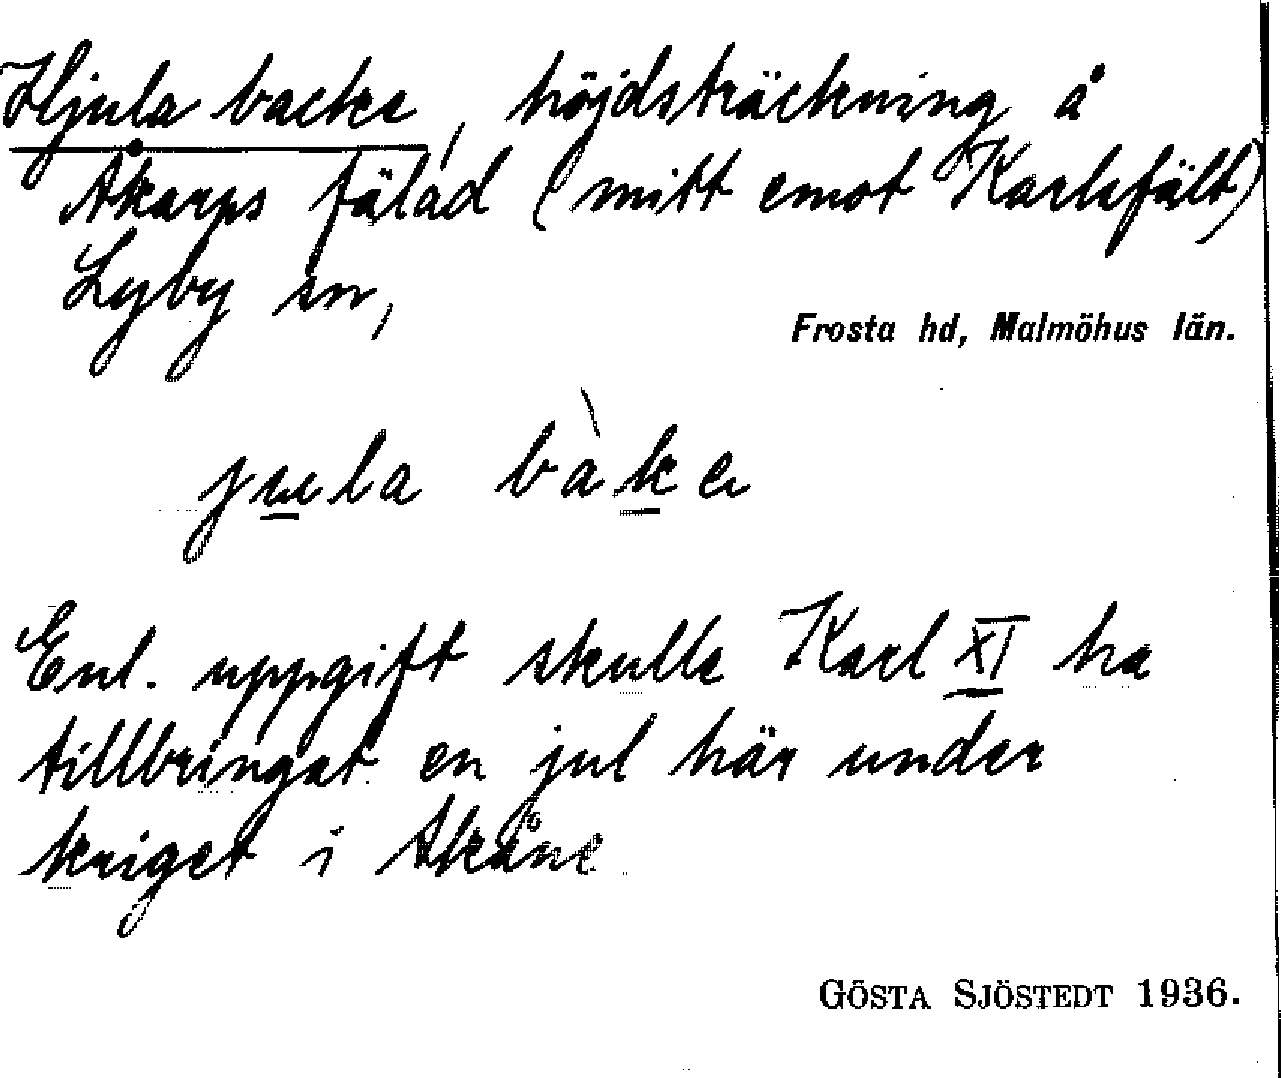 Hjula backe, höjdsträckning å
Åkarps fälad (mitt emot Karlsfält)
Lyby sn,
Frosta hd, Malmöhus län.
jula bàke
Enl. uppgift skulle Karl XI ha
tillbringat en jul här under
kriget i Skåne
GÖSTA SJÖSTEDT 1936.